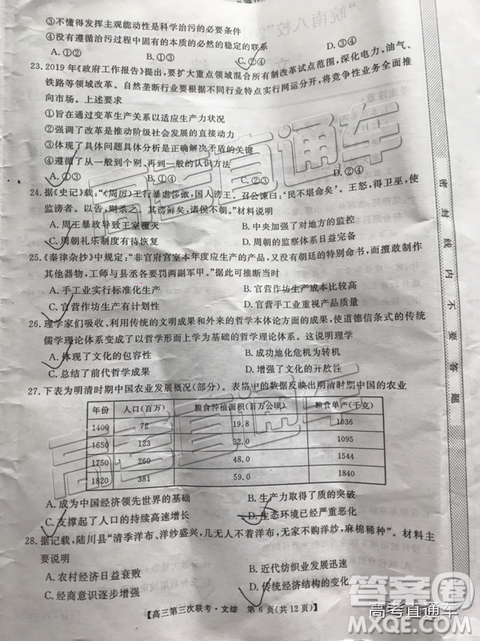 ③不懂得发挥主观能动性是科学治污的必要条件
④没有遵循治污过程中固有的本质的必然的稳定的联系
A.①② B.①③ C.②④ D.③④
23.2019年《政府工作报告》提出,要扩大重点领域混合所有制改革试点范围,深化电力、油气、
铁路等领域改革。自然垄断行业要根据不同行业特点实行网运分开,将竞争性业务全面推
向市场。上述要求
①旨在通过变革生产关系以适应生产力状况
②强调了改革是推动阶级社会发展的直接动力
③体现了具体问题具体分析是马克思主义活的灵魂
④遵循了从一般到个别,再到一般的认识秩序
A.①② B.①③ C.②④ D.③④
24.据《史记》载:"(周厉)王行暴虐侈傲,国人谤王。召公谏曰:'民不堪命矣'。王怒,得卫巫,使
监谤者。以告,则杀之。其谤鲜矣,诸侯不朝。"材料说明
A.周王暴政导致王室覆灭 B.中央加强了对地方的监控
C.周朝礼乐制度有待恢复 D.贵族政治日益衰败
25.《秦律杂抄》中规定:"非官府宫室本年度应生产的产品,又没有朝廷的特别命书,而擅敢制作
其他器物,工师与县丞各要罚两副军甲。"据此可推断当时
A.手工业实行标准化生产 B.官营作坊生产成本比较高
C.官营作坊生产有计划性 D.官营手工业重视产品质量
26.理学家们吸收、利用传统的文明成果和外来的哲学本体论方面的成果,使道德信条式的传统
儒学理论体系变革为以哲学形而上学为基础的哲学理论体系。这说明理学
A.体现了文化的包容性 B.体现了思辨性
C.总结了前代哲学成果 D.增强了生活气息
27.下表为明清时期中国农业发展概况(部分)。表中的数据反映出明清时期中国的农业
年份 人口(百万) 粮食种植面积(百万公顷) 粮食单产(千克)
1400 72 19.8 1036
1650 123 32.0 1044
1750 260 48.0 1084
1820 381 59.0 1840
A.成为中国经济领先世界的基础 B.生产力取得了质的突破
C.支撑起了人口的持续高速增长 D.生态环境已经严重恶化
28.据记载,陆川县"清季洋布,洋纱盛兴,几无人不着洋布,无家不购洋纱,麻棉稀种"。材料主
要说明
A.农村经济日益衰败 B.近代纺织业发展迅速
C.农民生活日益贫困 D.自然经济逐渐瓦解
【高三第三次联考·文综 第6页(共12页)】
密封线内不要答题
高考直通车
高考直通车
答案圈
高考直通车